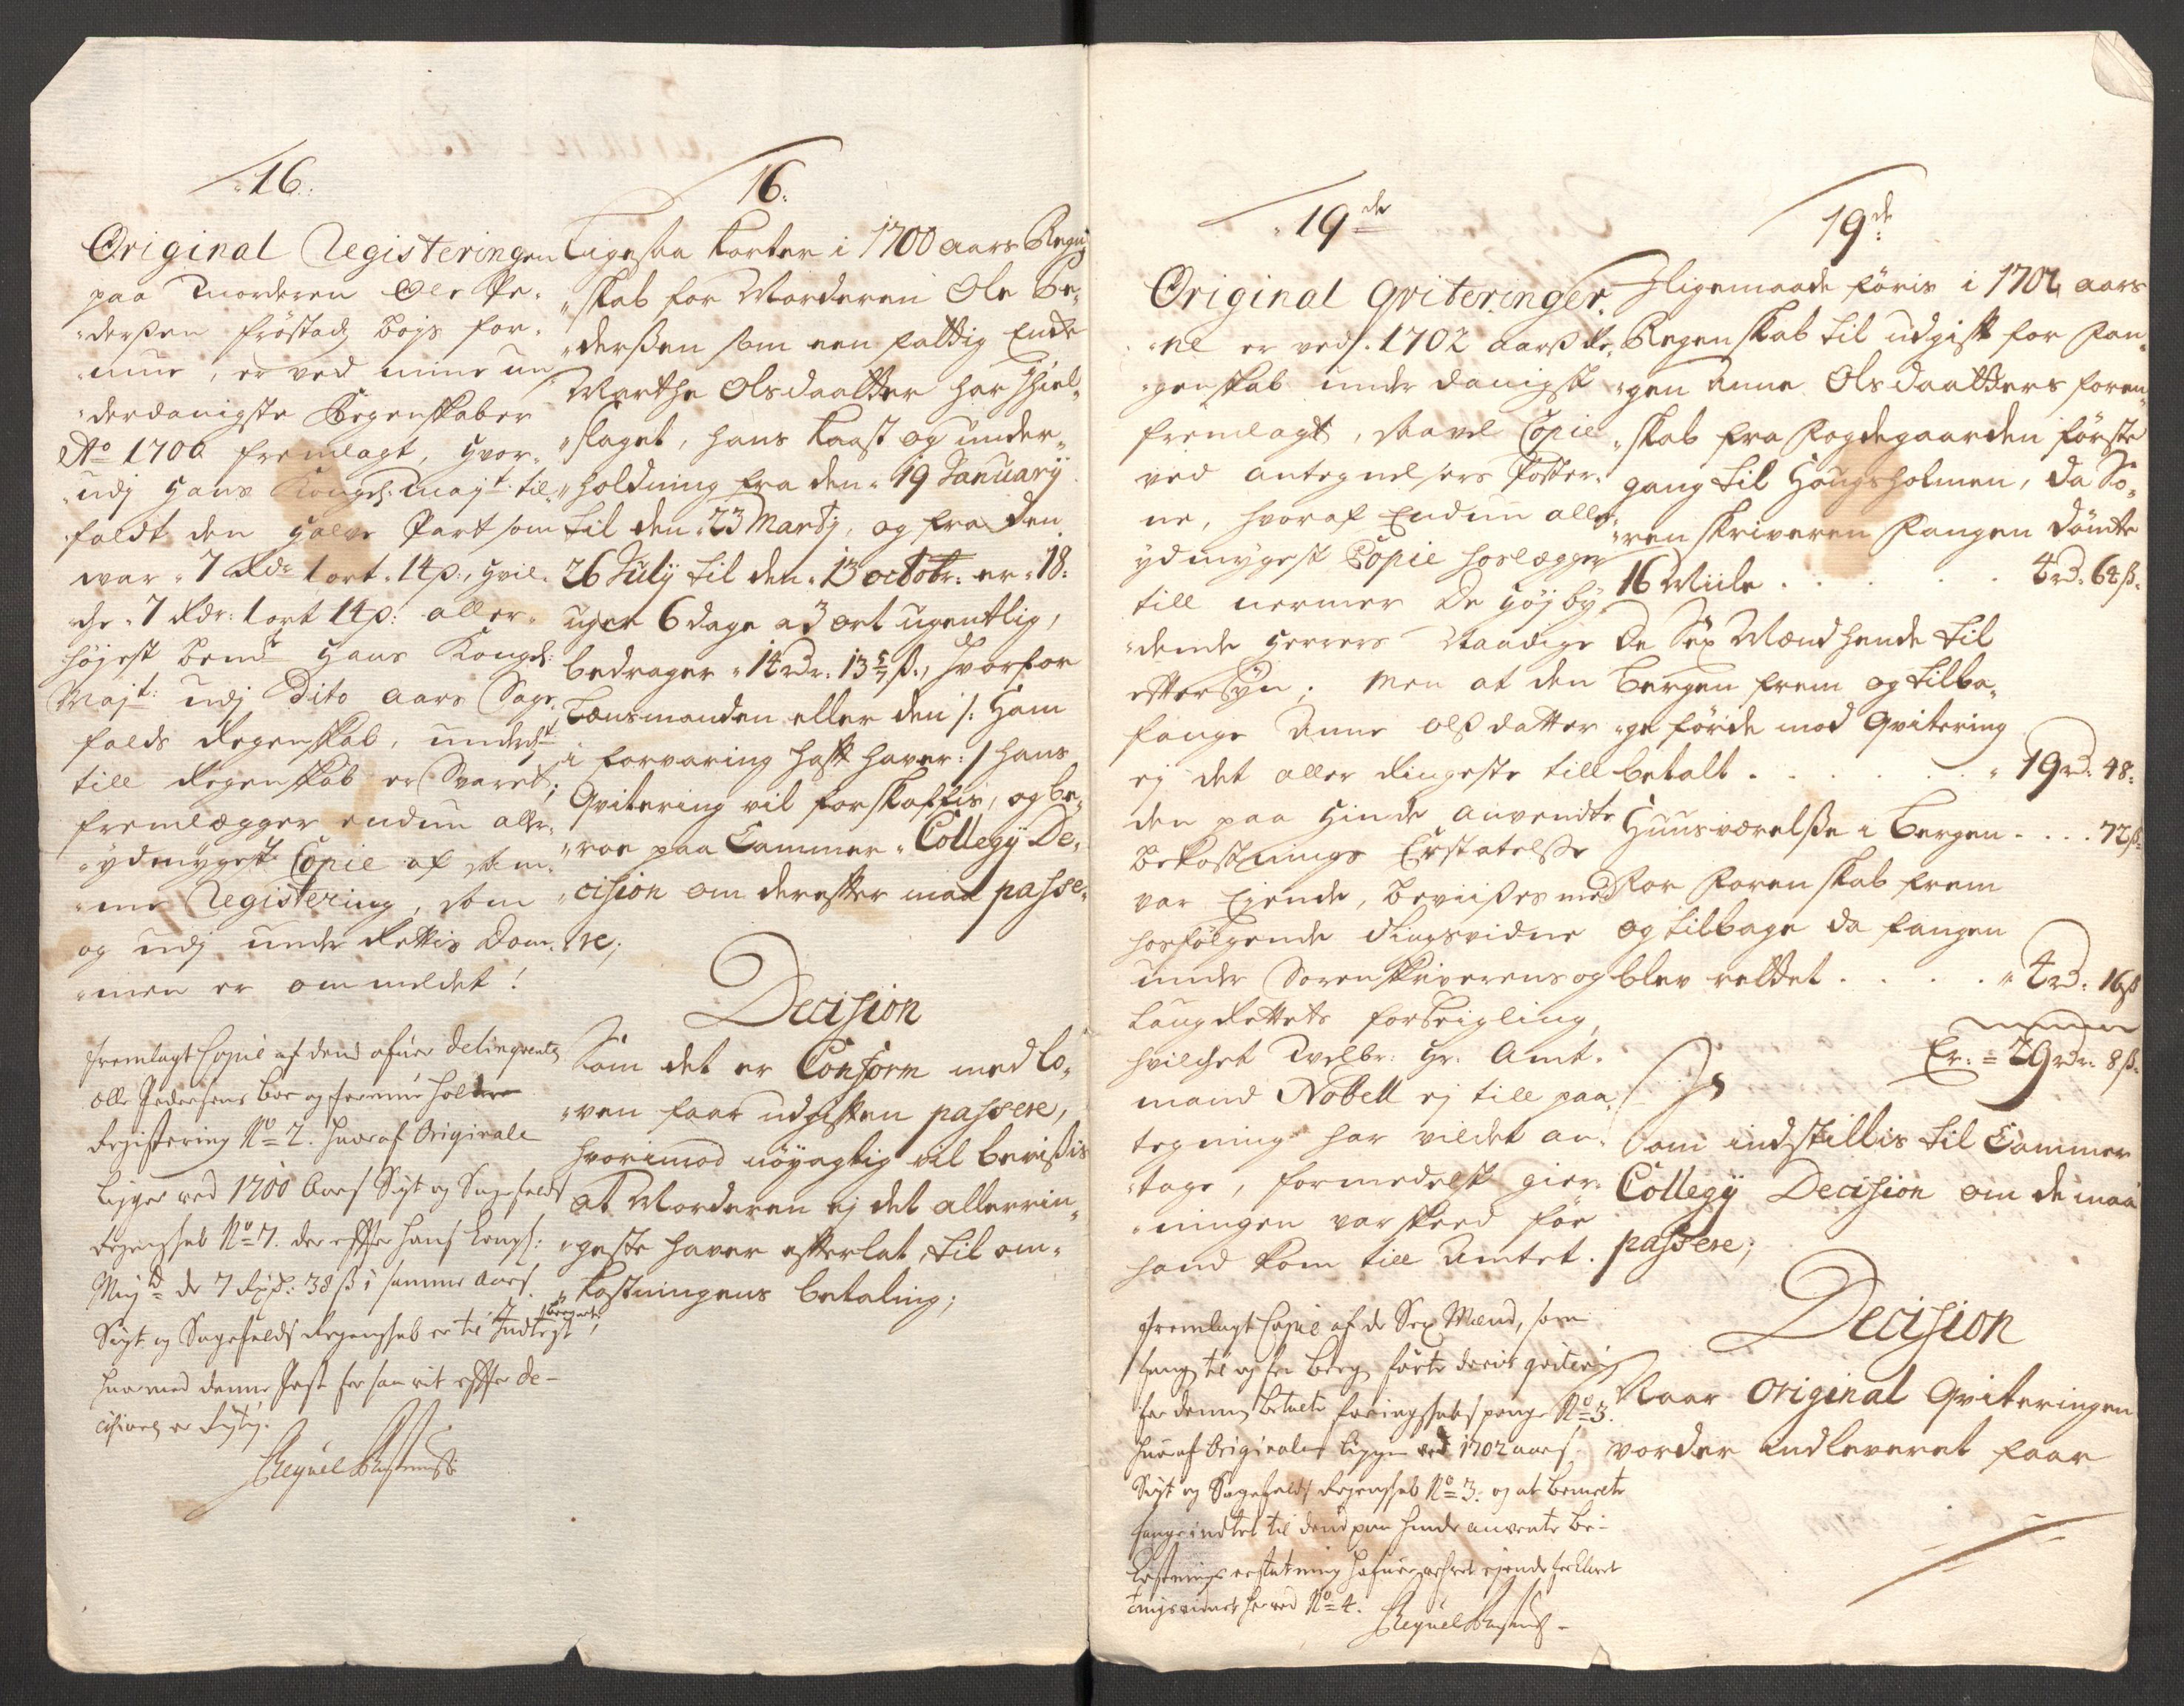 16.
Original Registeringen
paa Morderen Ole Pe-
derßen Fröstad Boes for-
mue, er ved mine un
derdanigste Regenskaber
Ao 1700 fremlagt, hvor-
udj Hans Kongl: Majt: til-
faldt den halve Part som
war 7 Rdr 1 ort 14 p:, hvil-
che 7 Rdr: 1 ort 14 p: aller-
højest bemt Hans Kongl:
Majt: udj Dito aars Sage
falds Regenskab, underdst
till Regenskab er Svaret;
fremlægger endnu aller-
ydmygest Copie af sam-
me Registering, som
og udj under Rettis Dom-
men er ommeldet!
Fremlagt Copie af dend afuer delinqventen
Olle Pedersens boe og formue holdene
Registering No 2. huor af Originale
ligger ved 1700 Aars Sigt og Sagefalds
Regenskab No 7. der effter Hans Kongl:
Maytt de 7 Rixd: 38 ß i samme Aars
Sigt og Sagefalds Regenskab er til Indtegt
bereignet,
huormed denne Post for saa vit effter de-
cisionen er rigtig.
16.
Ligesaa korter i 1700 aars Regn-
skab for Morderen Ole Pe-
derßen som een fattig Enke
Marthe Olsdaatter har ihiel-
slaget, hans Kaast og under-
holdning fra den 19 January
til den 23 Marty, og fra den
26 July til den 13 octobr: er 18:
uger 6 dage ad 3 ort ugentlig,
bedrager 14 rdr. 13 5/7 ß., hvorfor
Lænsmanden eller den /: Ham
i forvaring hafft haver :/ hans
Qvitering vil forskaffis, og be-
roe paa Cammer Collegy De-
cision om derefter maa passe-
re;
Decision
Som det er Conform med lo-
ven faar udgiften passere,
hvorimod nöyagtig vil bevißis
at Morderen ej det allerrin-
geste haver efterlat, til om-
kostningens betaling;
19de
Original Qviteringer-
ne er ved 1702 aarß Re-
genskab underdanigst
fremlagt, saavel Copie
ved antegnelsers Poster-
ne, hvoraf Endnu aller-
ydmygest Copie hoslægger
till nermer De Höjby-
dende Herrers Naadige
efftersyn; Men at den
fange Anne Olßdatter
ej det aller Ringeste till
den paa Hinde anvendte
Bekostnings Erstatelße
var Ejende, beviißes med
hosfölgende tingsvidne
under Sorenskriverens og
Laug Rettets forseigling,
hvilchet Welbr: Hr: Amt-
mand Nobell ej till paa-
tegning har vildet an-
tage, formedelst gier-
ningen var skeed för
hand kom till Amtet.
Fremlagt Copie af de Sex Mænd, som
fangen til og fra Bergen förte deris qvitering
for dennem betalte foringskabs penge No 3.
huoraf Originalen ligger ved 1702 aars
Sigt og Sagefalds Regenskab No 3. og at bemelte
fange indtet til dend paa hinde anvente be-
kostnings erstatning hafuer veret ejende forklarer
Tingsvidnet herved No 4.
19de
Iligemaade föris i 1702 aars
Regenskab til udgift for Fan-
gen Anne Olsdaatters foren-
skab fra Fogdegaarden förste
gang til Haugsholmen, da So-
renskriveren Fangen dömte
16 Miile . . . . . 4 rd. 64 ß.
De Sex Mænd hende til
Bergen frem og tilba-
ge förde mod Qvitering
betalt . . . . . . 19 rd. 48.
Huusværelße i Bergen . . . . 72 ß.
For Forenskab frem
og tilbage da fangen
blev rettet . . . . 4 rd. 16 ß
Er: = 29 rdr. 8 ß.
Som indstillis til Cammer
Collegy Decision om de maa
passere;
Decision
Naar Original Qviteringen
vorder indleveret faar